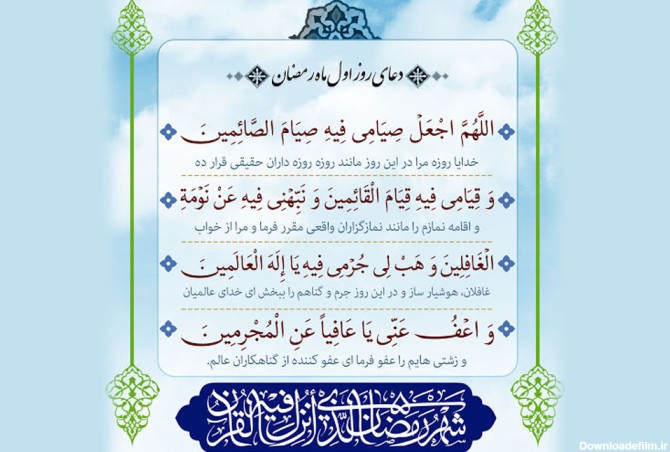 دعای روز اول ماه رمضان
اللَّهُمَّ اجْعَلْ صِيَامِي فِيهِ صِيَامَ الصَّائِمِينَ
خدایا روزه مرا در این روز مانند روزه روزه داران حقیقی قرار ده
وَ قِيَامِي فِيهِ قِيَامَ الْقَائِمِينَ وَ نَبِّهْنِي فِيهِ عَنْ نَوْمَةِ
و اقامه نمازم را مانند نمازگزاران واقعی مقرر فرما و مرا از خواب
الْغَافِلِينَ وَ هَبْ لِي جُرْمِي فِيهِ يَا إِلَهَ الْعَالَمِينَ
غافلان، هوشیار ساز و در این روز جرم و گناهم را ببخش ای خدای عالمیان
وَ اعْفُ عَنِّي يَا عَافِياً عَنِ الْمُجْرِمِينَ
و زشتی هایم را عفو فرما ای عفو کننده از گناهکاران عالم.
شهر رمضان الذي أنزل فيه القرآن
Downloadefilm.ir